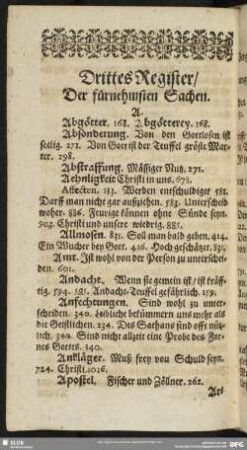 Drittes Register/
Der fürnehmsten Sachen.
A.
Abgötter. 168. Abgötterey. 168.
Absonderung. Von den Gottlosen ist
selig. 271. Von Gott ist der Teuffel gröste Mar-
ter. 298.
Abstraffung. Mässiger Nutz. 271.
Aehnligkeit Christi in uns. 678.
Affecten. 183. Werden entschuldiget 581.
Darff man nicht gar außziehen. 583. Unterscheid
woher. 886. Feurige können ohne Sünde seyn.
903. Christi und unsere wiedrig. 881.
Allmosen. 831. Sol man bald geben. 414.
Ein Wucher bey Gott. 416. Hoch geschätzet.
Amt. Ist wohl von der Person zu unterschei-
den. 601.
Andacht. Wenn sie gemein ist/ ist kräff-
tig. 594. Andacht-Teuffel gefährlich. 159.
Anfechtungen. Sind wohl zu unter-
scheiden. 340. Leibliche bekümmern uns mehr als
die Geistlichen. 234. Des Sathans sind offt nütz-
lich. 340. Sind nicht allzeit eine Probe des Zor-
nes Gottes. 340.
Ankläger. Muß frey von Schuld seyn.
724. Christi. 1016.
Apostel. Fischer und Zöllner. 262.